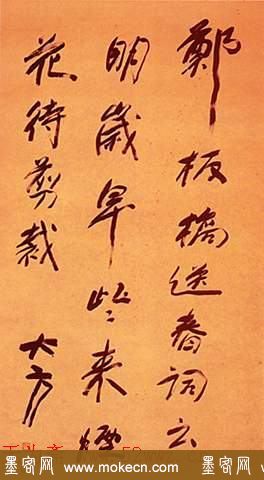 鄭板橋送春詞云
明歲早些来煙
花待剪裁
大方
墨客网 www.mokecn.com 墨客网